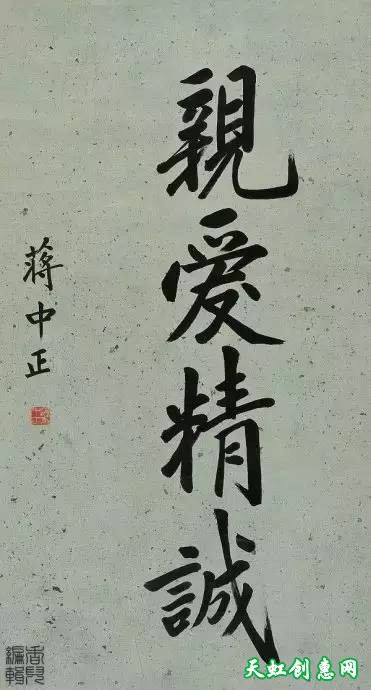 親爱精誠
蔣中正
天虹创意网